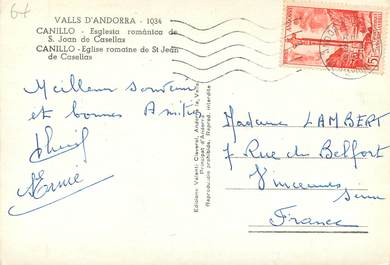 64
VALLS D'ANDORRA - 1034
CANILLO - Esglesia románica de
S. Joan de Casellas
CANILLO - Eglise romaine de St Jean
de Casellas
Meilleur souvenir
et bonnes Amitiés
Edicions Valentí Claverol, Andorra la Vella
Principat d'Andorra
Reproduccio prohibida. Reprod. interdite
ANDORRE
15F
Madame LAMBERT
7 Rue du Belfort
Vincennes
Seine
France